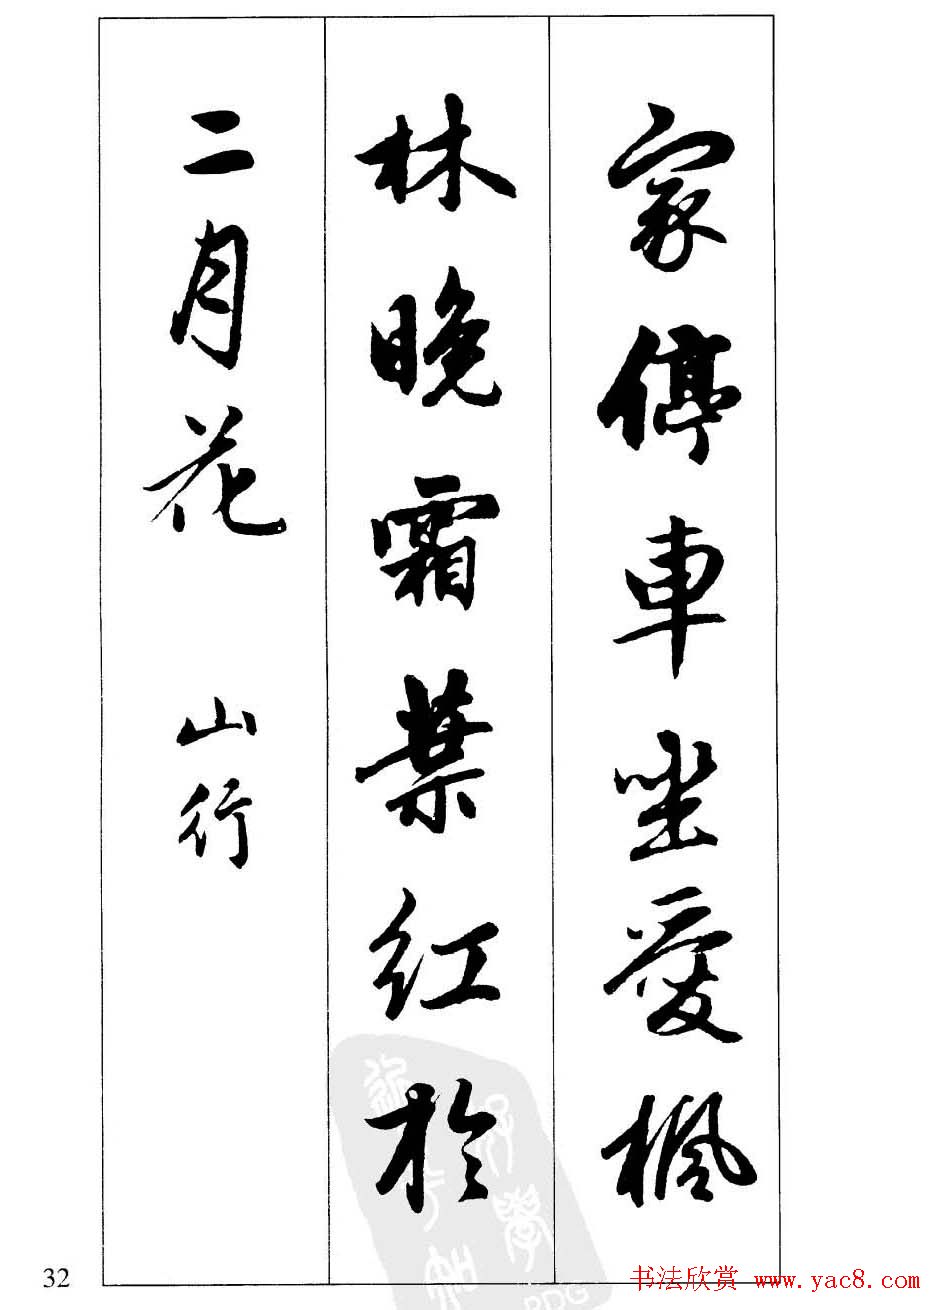 家停車坐愛楓
林晚霜葉紅於
二月花 山行
32
书法欣赏 www.yac8.com